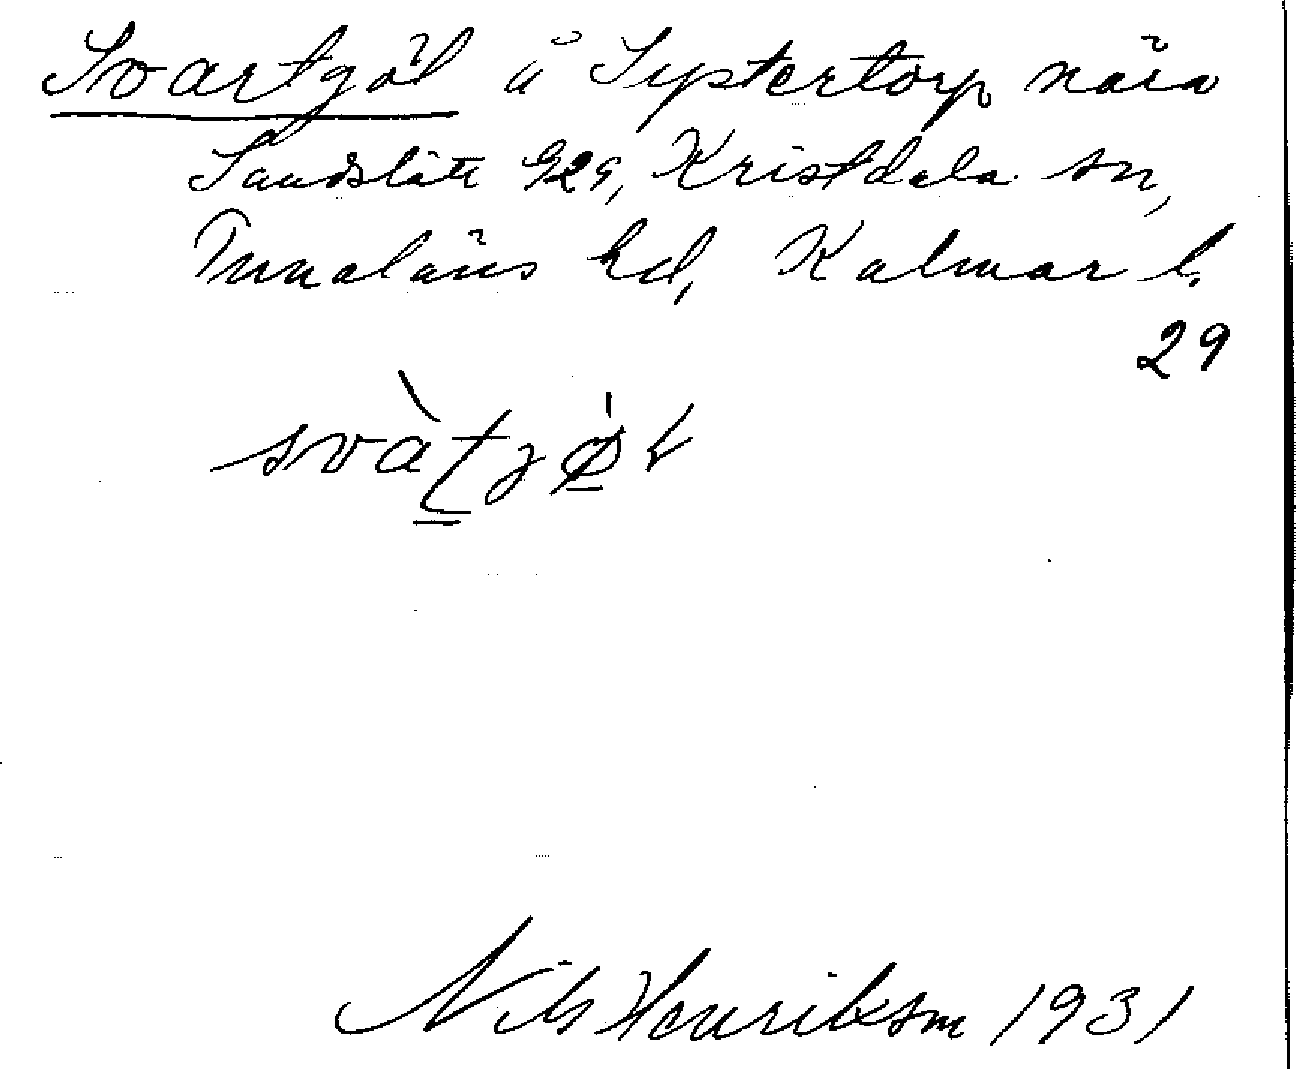 Svartgöl å Systertorp nära
Sandslätt G29, Kristdala sn,
Tunaläns hd, Kalmar l.
29
Nils Henriksson 1931